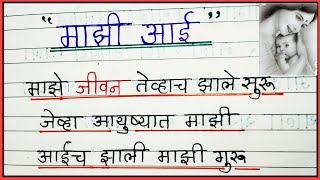 "माझी आई"
माझे जीवन तेव्हाच झाले सुरू
जेव्हा आयुष्यात माझी
आईच झाली माझी गुरू